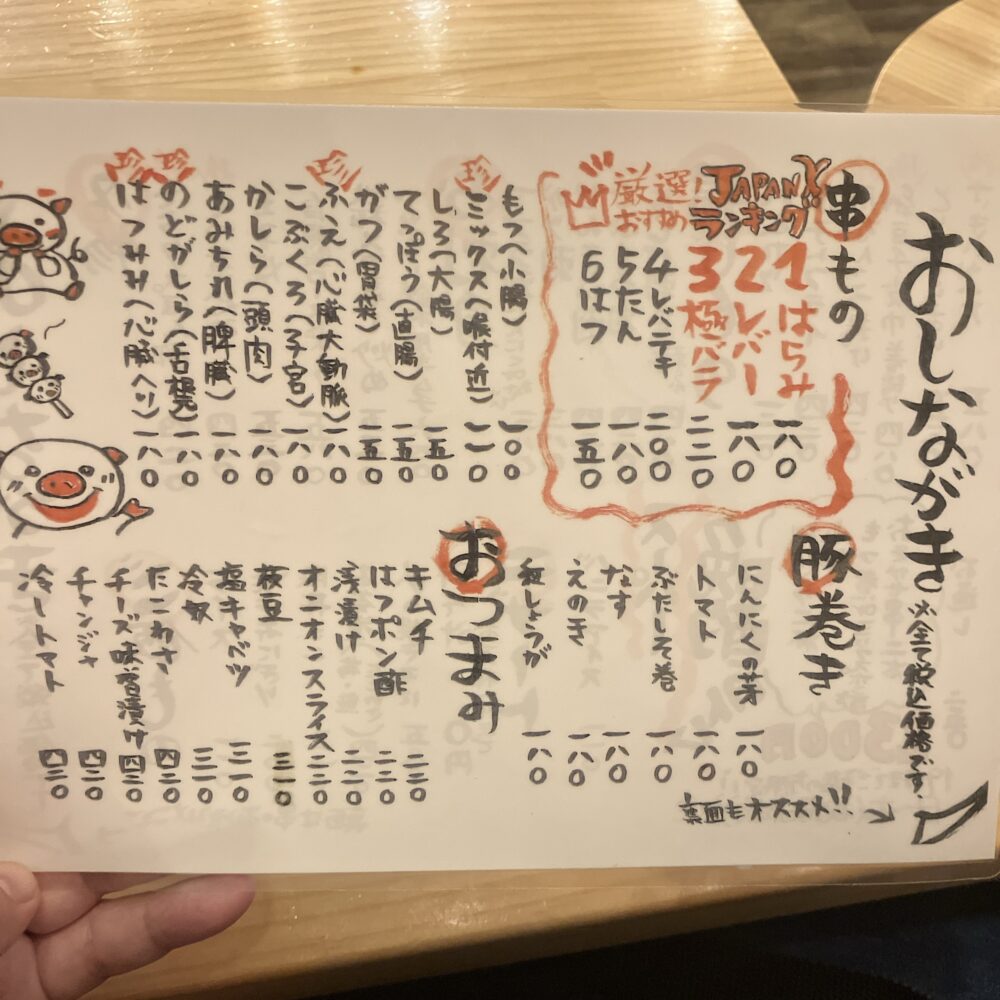 おしながき
※全て税込価格です。
串もの
厳選！
おすすめ
JAPAN X
ランキング
1 はらみ 一八〇
2 レバー 一八〇
3 極バラ 二二〇
4 レバテキ 二〇〇
5 たん 一八〇
6 はつ 一五〇
もつ（小腸） 一〇〇
珍
ミックス（喉付近） 一一〇
しろ（大腸） 一五〇
てっぽう（直腸） 一五〇
がつ（胃袋） 一五〇
珍
ふえ（心臓大動脈） 一八〇
こぶくろ（子宮） 一八〇
かしら（頭肉） 一八〇
あみちれ（脾臓） 一八〇
珍
のどがしら（舌喉） 一八〇
珍
はつみみ（心臓ヘリ） 一八〇
豚巻き
にんにくの芽 一八〇
トマト 一八〇
ぶたしそ巻 一八〇
なす 一八〇
えのき 一八〇
紅しょうが 一八〇
おつまみ
キムチ 二二〇
はつポン酢 二二〇
浅漬け 二二〇
オニオンスライス 二二〇
枝豆 三一〇
塩キャベツ 三一〇
冷奴 三一〇
たこわさ 四二〇
チーズ味噌漬け 四二〇
チャンジャ 四二〇
冷しトマト 四二〇
裏面もオススメ!!